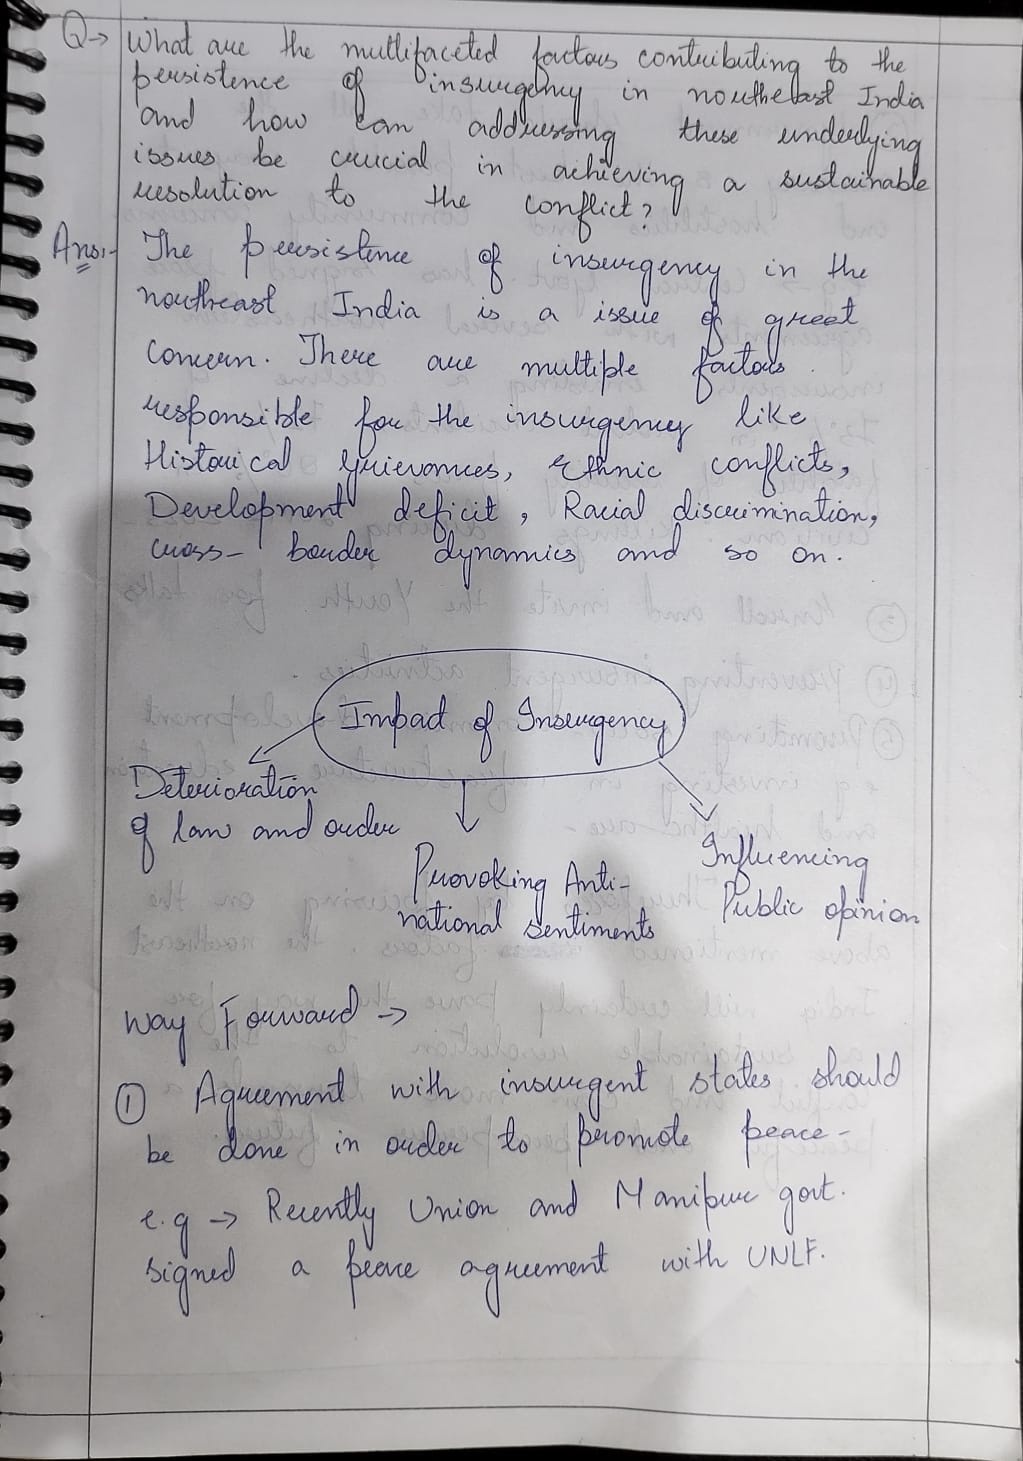 Q→ What are the multifaceted factors contributing to the
persistence of insurgency in northeast India
and how can addressing these underlying
issues be crucial in achieving a sustainable
resolution to the conflict?
Ans:- The persistence of insurgency in the
northeast India is a issue of great
concern. There are multiple factors
responsible for the insurgency like
Historical grievances, Ethnic conflicts,
Development deficit, Racial discrimination,
cross-border dynamics and so on.
Impact of Insurgency
Deterioration
of law and order
Provoking Anti-
national sentiments
Influencing
Public opinion
Way Forward →
① Agreement with insurgent states should
be done in order to promote peace-
e.g → Recently Union and Manipur govt.
signed a peace agreement with UNLF.